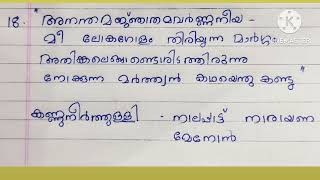 18. "അനന്തമജ്ഞാതമവർണ്ണനീയ -
മീ ലോകഗോളം തിരിയുന്ന മാർഗ്ഗം
അതിങ്കലെങ്ങാണ്ടൊരിടത്തിരുന്നു
നോക്കുന്ന മർത്ത്യൻ കഥയെന്തു കണ്ടു"
കണ്ണുനീർത്തുള്ളി - നാലപ്പാട്ട് നാരായണ
മേനോൻ